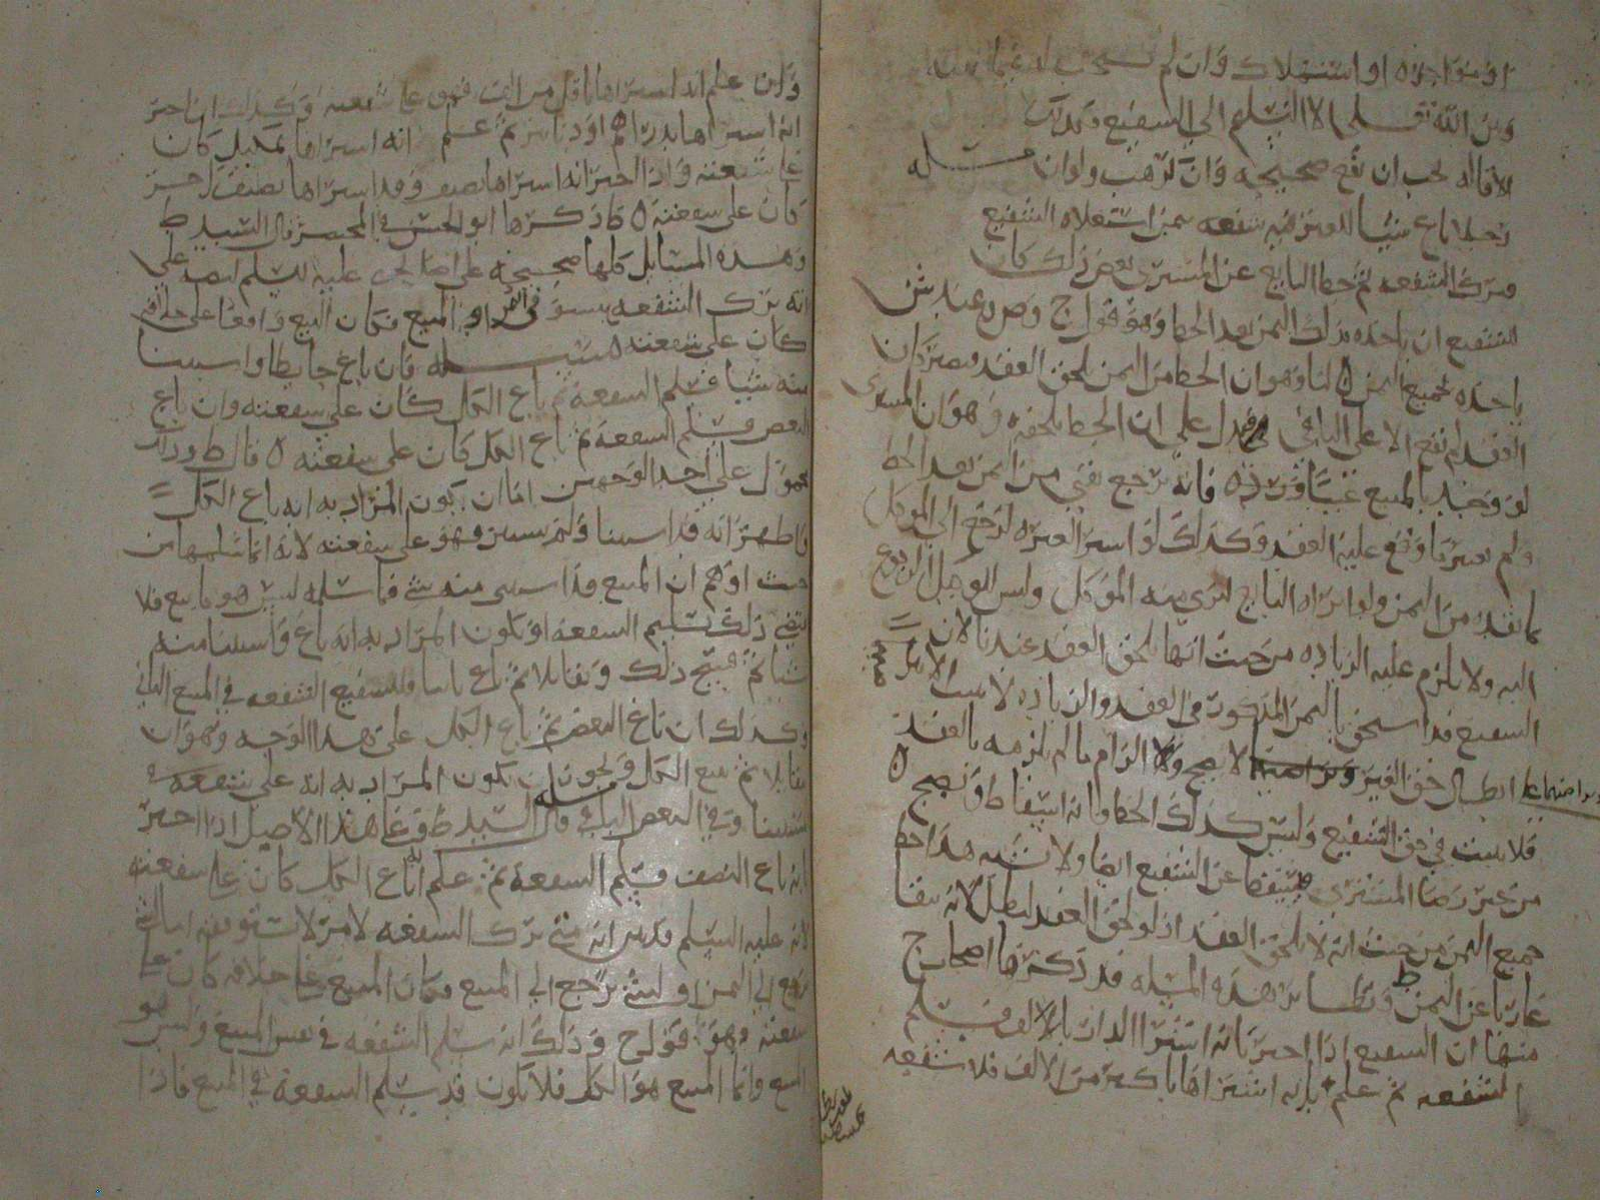 او مواجره او استهلاك وان لم
ومن الله قلى الا التسليم الى الشفيع
الاقاله يجب ان تقع صحيحه وان مسله
رجل باع شيئا لغيره فيه شفعه بثمن استغلاه الشفيع
فترك الشفعه ثم حط البايع عن المشتري بعض ذلك كان
للشفيع ان ياخذه بذلك الثمن بعد الحط وهو قول ح وص وعند ش
ياخذه بجميع الثمن لنا وهو ان الحط من الثمن يلحق العقد
العقد لم يقع الا على الباقي فدل على ان الحط يلحقه وهو ان المشتري
لو وجد بالمبيع عيبا فرده فانه يرجع بقي من الثمن بعد الحط
ولم يعتبر ما وقع عليه العقد وكذلك لو اشترى لغيره لرجع الى الموكل
بما نقد من الثمن ولو ابراه البايع لبري منه الموكل وليس للوكيل الرجوع
اليه ولا يلزم عليه الزياده من حيث انها تلحق العقد عندنا لان
الشفيع قد استحق بالثمن المذكور في العقد والزياده لا
ابطال حق الغير لا يصح ولا الزام ما لم يلزمه بالعقد
فلا يثبت في حق الشفيع وليس كذلك الحط فانه اسقاط وتصح
من غير رضا المشتري فيسقط عن الشفيع ايضا ولا يشبه هذا حط
جميع الثمن من حيث انه لا يلحق العقد اذ لو لحق العقد لبطل لانه يبقا
عاريا عن الثمن ونظاير هذه المسله قد ذكرها اصحاب ح
منها ان الشفيع اذا اخبر بانه اشترا الدار بالالف فسلم
الشفعه ثم علم بانه اشتراها باكثر من الالف فلا شفعه
وان علم انه اشتراها باقل من الف فهو على شفعته وكذلك ان اخبر
انه اشتراها بدراهم او دنانير ثم علم انه اشتراها بمكيل كان
على شفعته واذا اخبر انه اشتراها بصنف وقد اشتراها بصنف اخر
كان على شفعته ما ذكرها ابو الحسن في المختصر قال السيد ط
وهذه المسايل كلها صحيحه على اصل يحيى عليه السلم لنصه على
انه ترك الشفعه في الثمن او المبيع فكان البيع واقعا على خلافه
كان على شفعته مسله فان باع حايطا واستثنا
منه شيئا فسلم الشفعه ثم باع الكل كان على شفعته وان باع
البعض فسلم الشفعه ثم باع الكل كان على شفعته قال ط وذلك
محمول على احد الوجهين اما ان يكون المراد به انه باع الكل
فاظهر انه قد استثنا ولم يستثن فهو على شفعته لانه انما سلمها من
حيث اوهم ان المبيع قد استثني منه شي فما سلمه ليس هو ما بيع فلا
يقتضي ذلك تسليم الشفعه او يكون المراد به انه باع واستثنا منه
شيئا ثم فسخ ذلك وتقايلا ثم باع ثانيا فللشفيع الشفعه في المبيع الثاني
وكذلك ان باع البعض ثم باع الكل على هذا الوجه وهو ان
تقايلا ثم بيع الكل ويجوز ان يكون المراد به انه على شفعته
استثنا وفي البعض الباقي مسله قال السيد ط وعلى هذا الاصل اذا اخبر
بانه باع النصف فسلم الشفعه ثم علم انه باع الكل كان على شفعته
لانه عليه السلم قد بين انه متى ترك الشفعه لامر لا
رجع الى الثمن او لشي يرجع الى المبيع فكان المبيع على خلافه كان على
شفعته وهو قول ح وذلك انه سلم الشفعه في بعض المبيع وليس هو
المبيع وانما المبيع هو الكل فلا يكون قد سلم الشفعه في المبيع فاذا